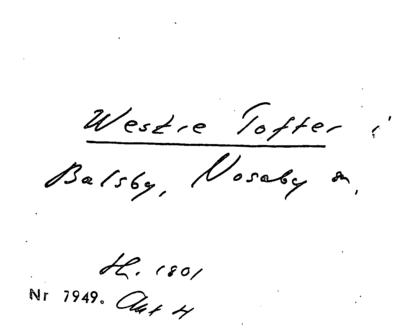 Westre Tofter i
Balsby, Nosaby sn,
Hn. 1801
Nr 7949. Akt 4